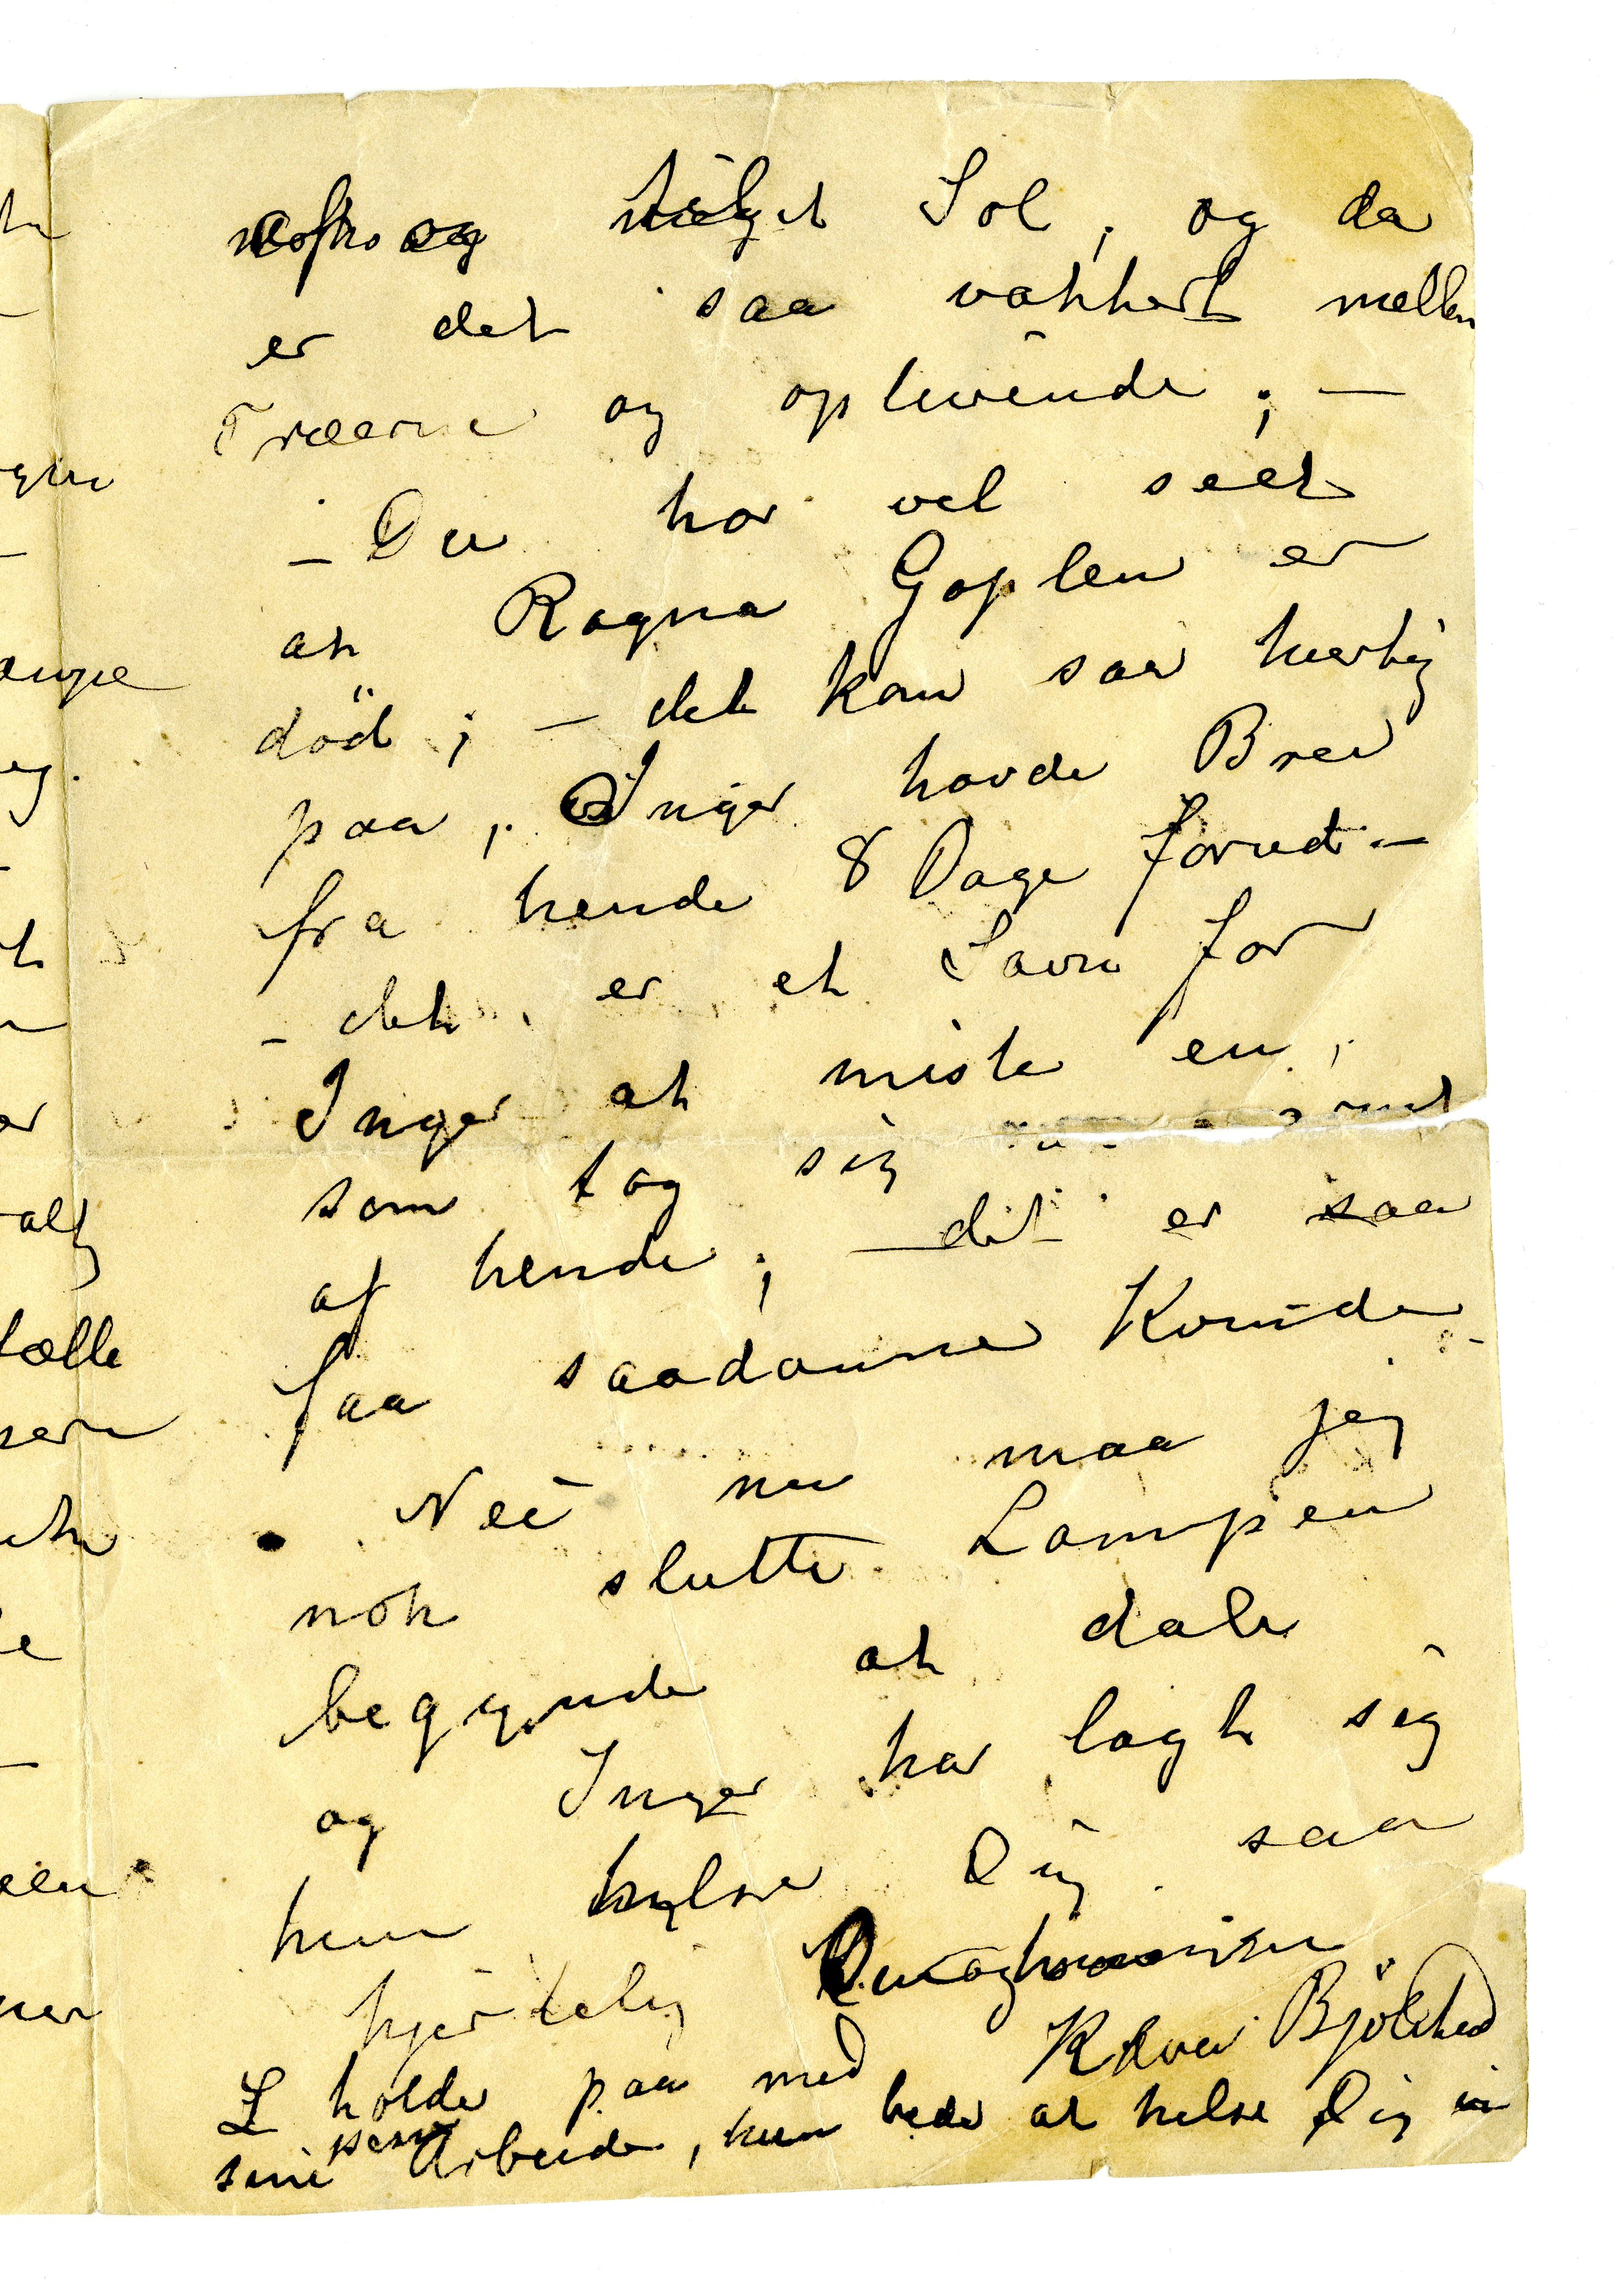 og meget Sol, og da
er det saa vakkert mellem
Træerne og oplivende; —
— Du har vel seet
at Ragna Goplen er
död; — det kom saa hurtig
paa, Inger havde Brev
fra hende 8 Dage forud —
— det er et Savn for
Inger at miste en,
som tog sig
af hende; — det er saa
faa saadanne Kvinder
Nei nu maa jeg
nok slutte Lampen
begynde at dale
og Inger har lagt sig
hun hilse Dig saa
hjertelig
Karen Bjölstad
L holder paa med
sine Arbeider, hun beder at hilse Dig